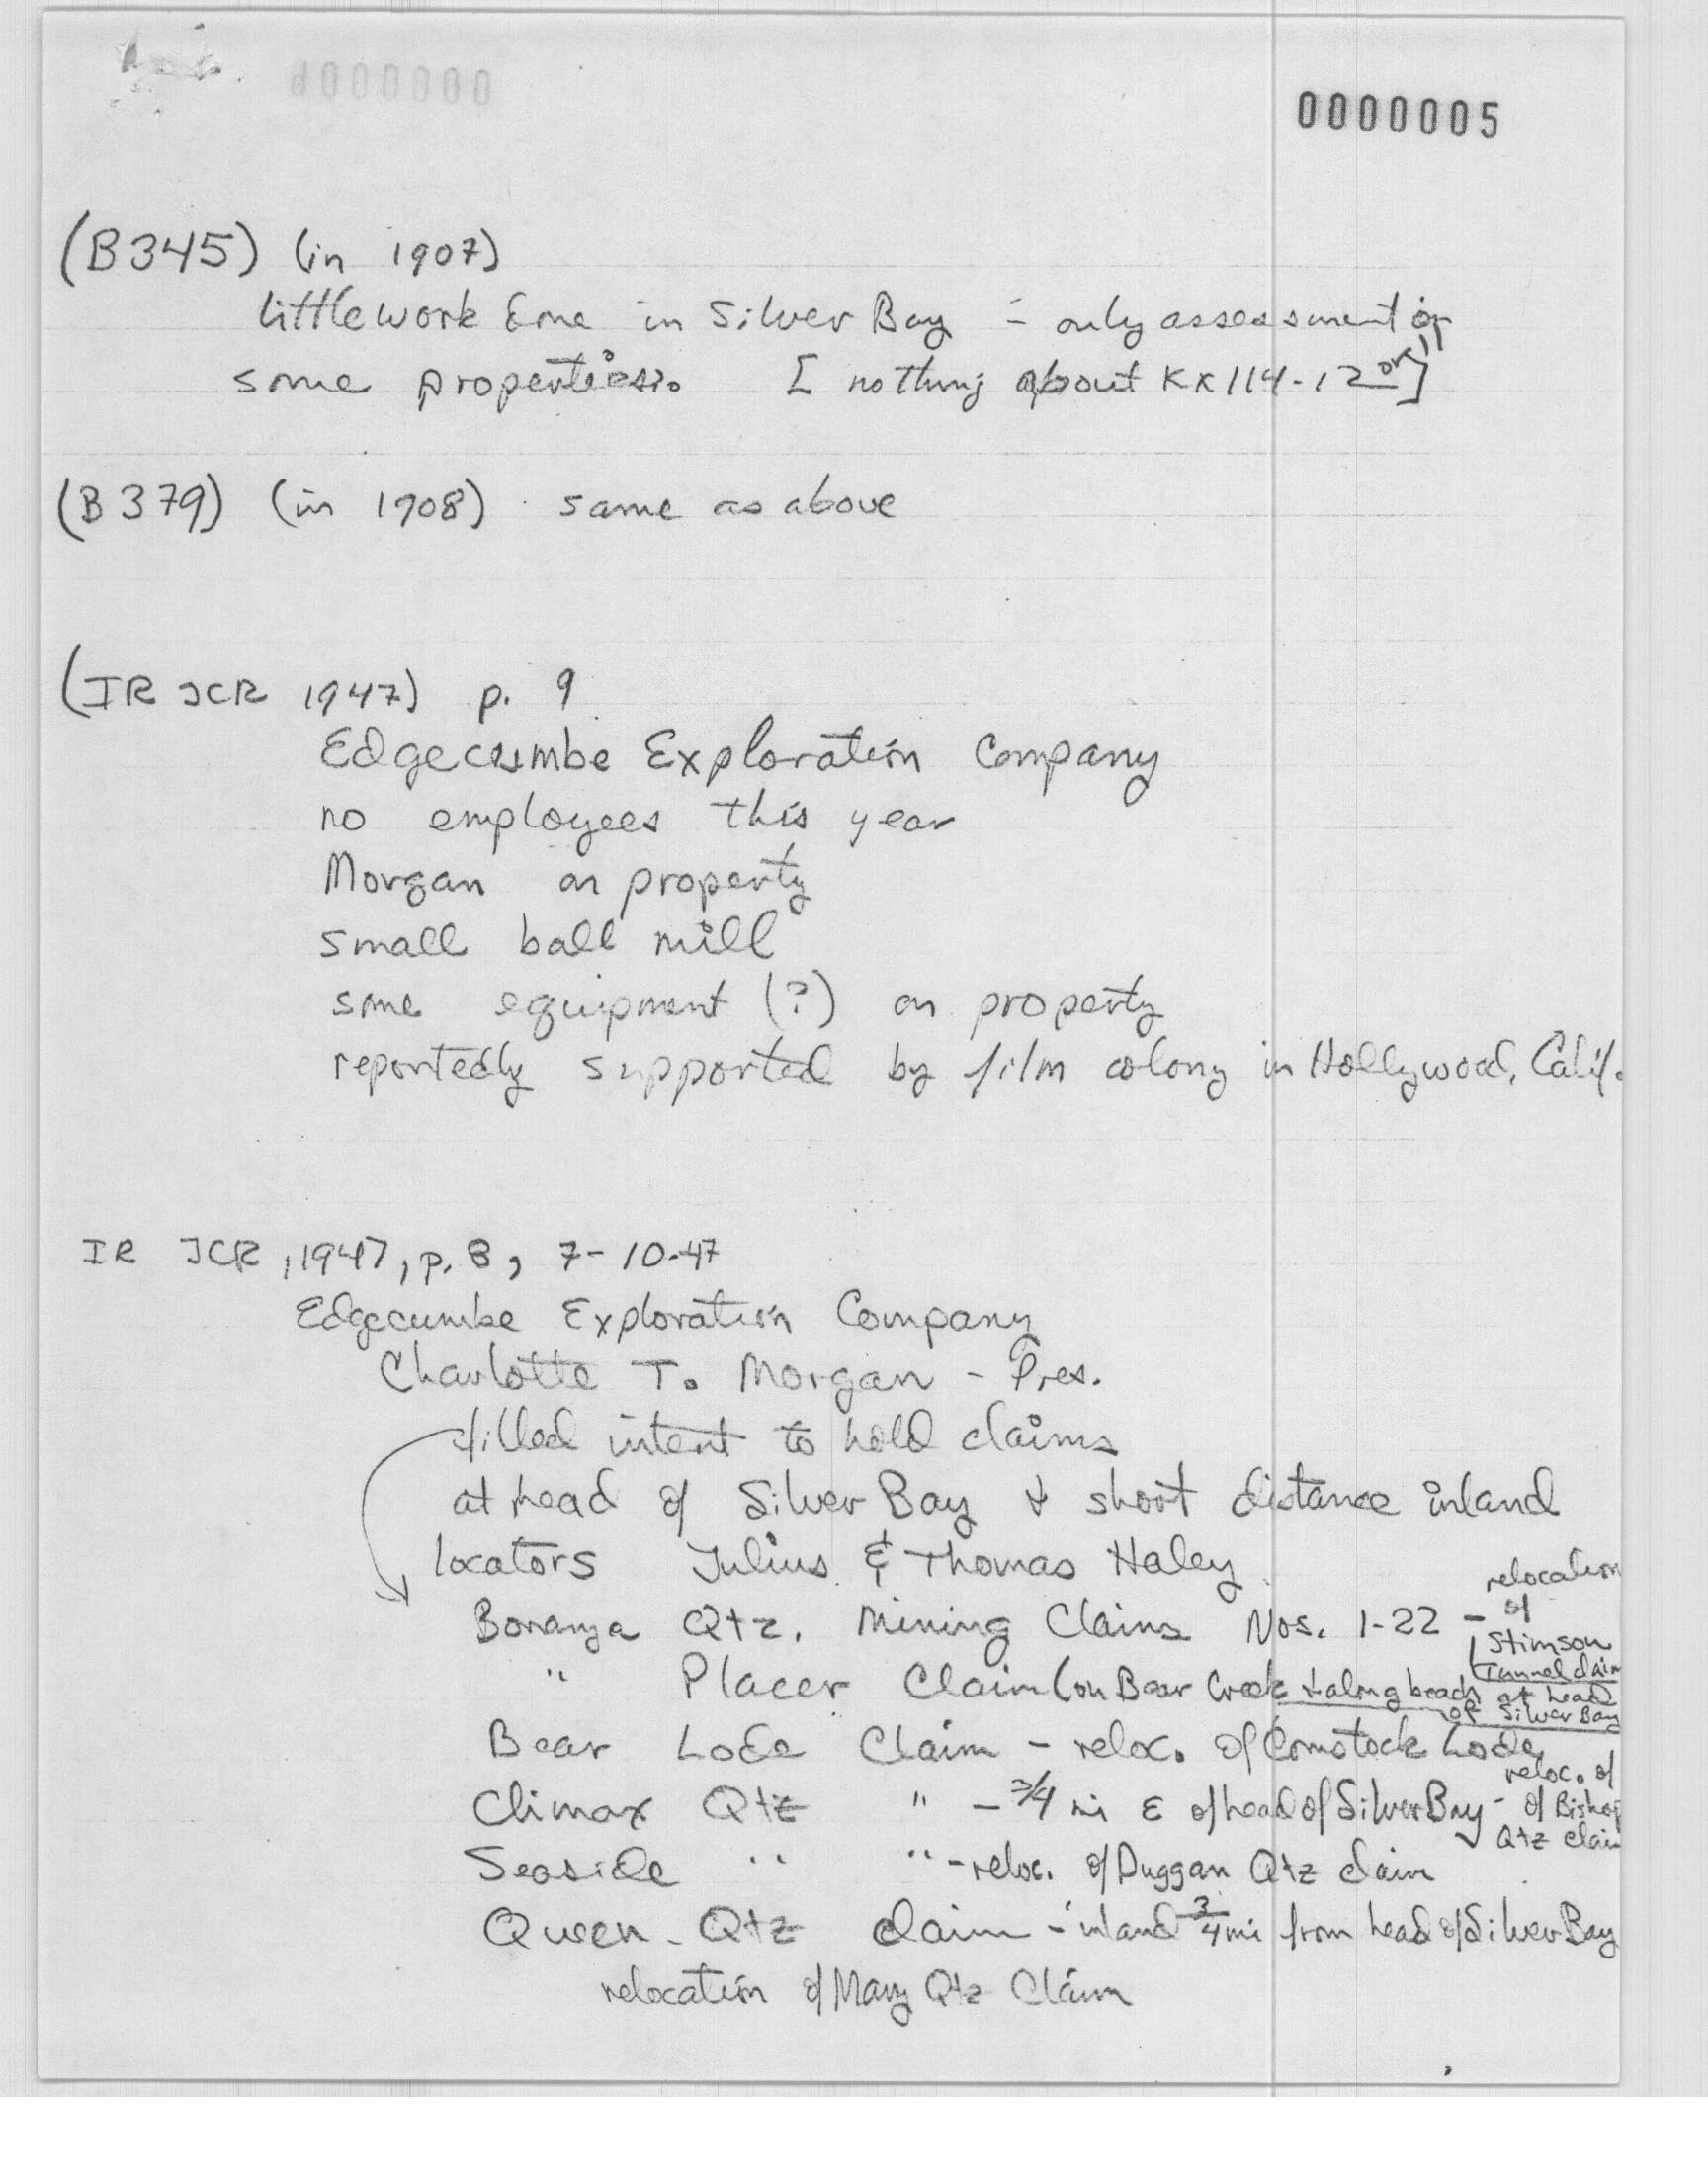 0000005
(B345) (in 1907)
little work done in Silver Bay - only assessment on
some properties. [nothing about KX114-12
(B 379) (in 1908) same as above
(IR JCR 1947) p. 9
Edgecumbe Exploration Company
no employees this year
Morgan on property
small ball mill
some equipment (?) on property
reportedly supported by film colony in Hollywood, Calif.
IR JCR, 1947, p. 8, 7-10-47
Edgecumbe Exploration Company
Charlotte T. Morgan - Pres.
filled intent to hold claims
at head of Silver Bay & short distance inland
locators Julius & Thomas Haley
Bonanza Qtz. Mining Claims Nos. 1-22 - relocation
of
Stimson
Tunnel claim
" Placer Claim (on Bear Creek & along beach at head
of Silver Bay
Bear Lode Claim - reloc. of Comstock Lode
Climax Qtz " - 3/4 mi E of head of Silver Bay - reloc. of
of Bishop
Qtz claim
Seaside " " - reloc. of Duggan Qtz claim
Queen - Qtz claim - inland 3/4 mi from head of Silver Bay
relocation of Mary Qtz Claim